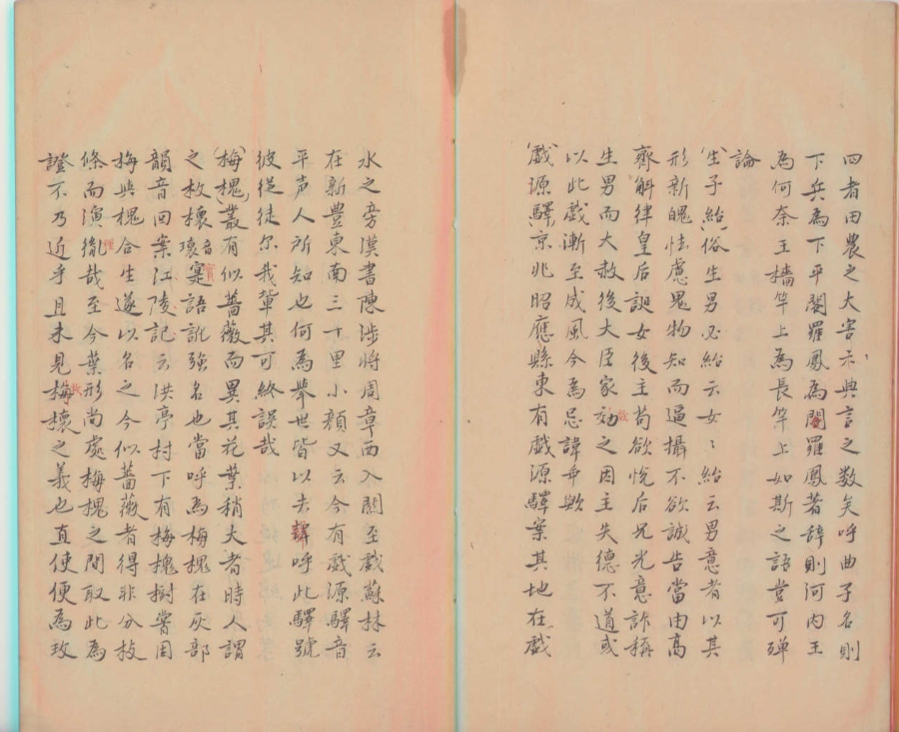 四者田農之大害不典言之数矣呼曲子名則
下兵為下平閣羅鳳為閣羅鳳著辞則河内王
為何奈王檣竿上為長竿上如斯之語豈可殫
論
生子紿俗生男必紿云女女紿云男意者以其
形新魄怯慮鬼物知而逼攝不欲誠告當由高
齊斛律皇后誕女後主苟欲悅后兄光意詐稱
生男而大赦後大臣家効之因主失德不道或
以此戲漸至成風今為忌諱乖歟
戲源驛京兆昭應縣東有戲源驛案其地在戲
水之旁漢書陳涉將周章西入關至戲蘇林云
在新豊東南三十里小顏又云今有戲源驛音
平声人所知也何為舉世皆以去譯呼此驛號
彼從徒尔我輩其可終誤哉
梅槐叢有似薔薇而異其花葉稍大者時人謂
之枚櫰音瓌寔語訛強名也當呼為梅槐在灰部
韻音回案江陵記云洪亭村下有梅槐樹嘗因
梅與槐合生遂以名之今似薔薇者得非分枝
條而演胤哉至今葉形尚處梅槐之間取此為
證不乃近乎且未見梅櫰之義也直使便為玫